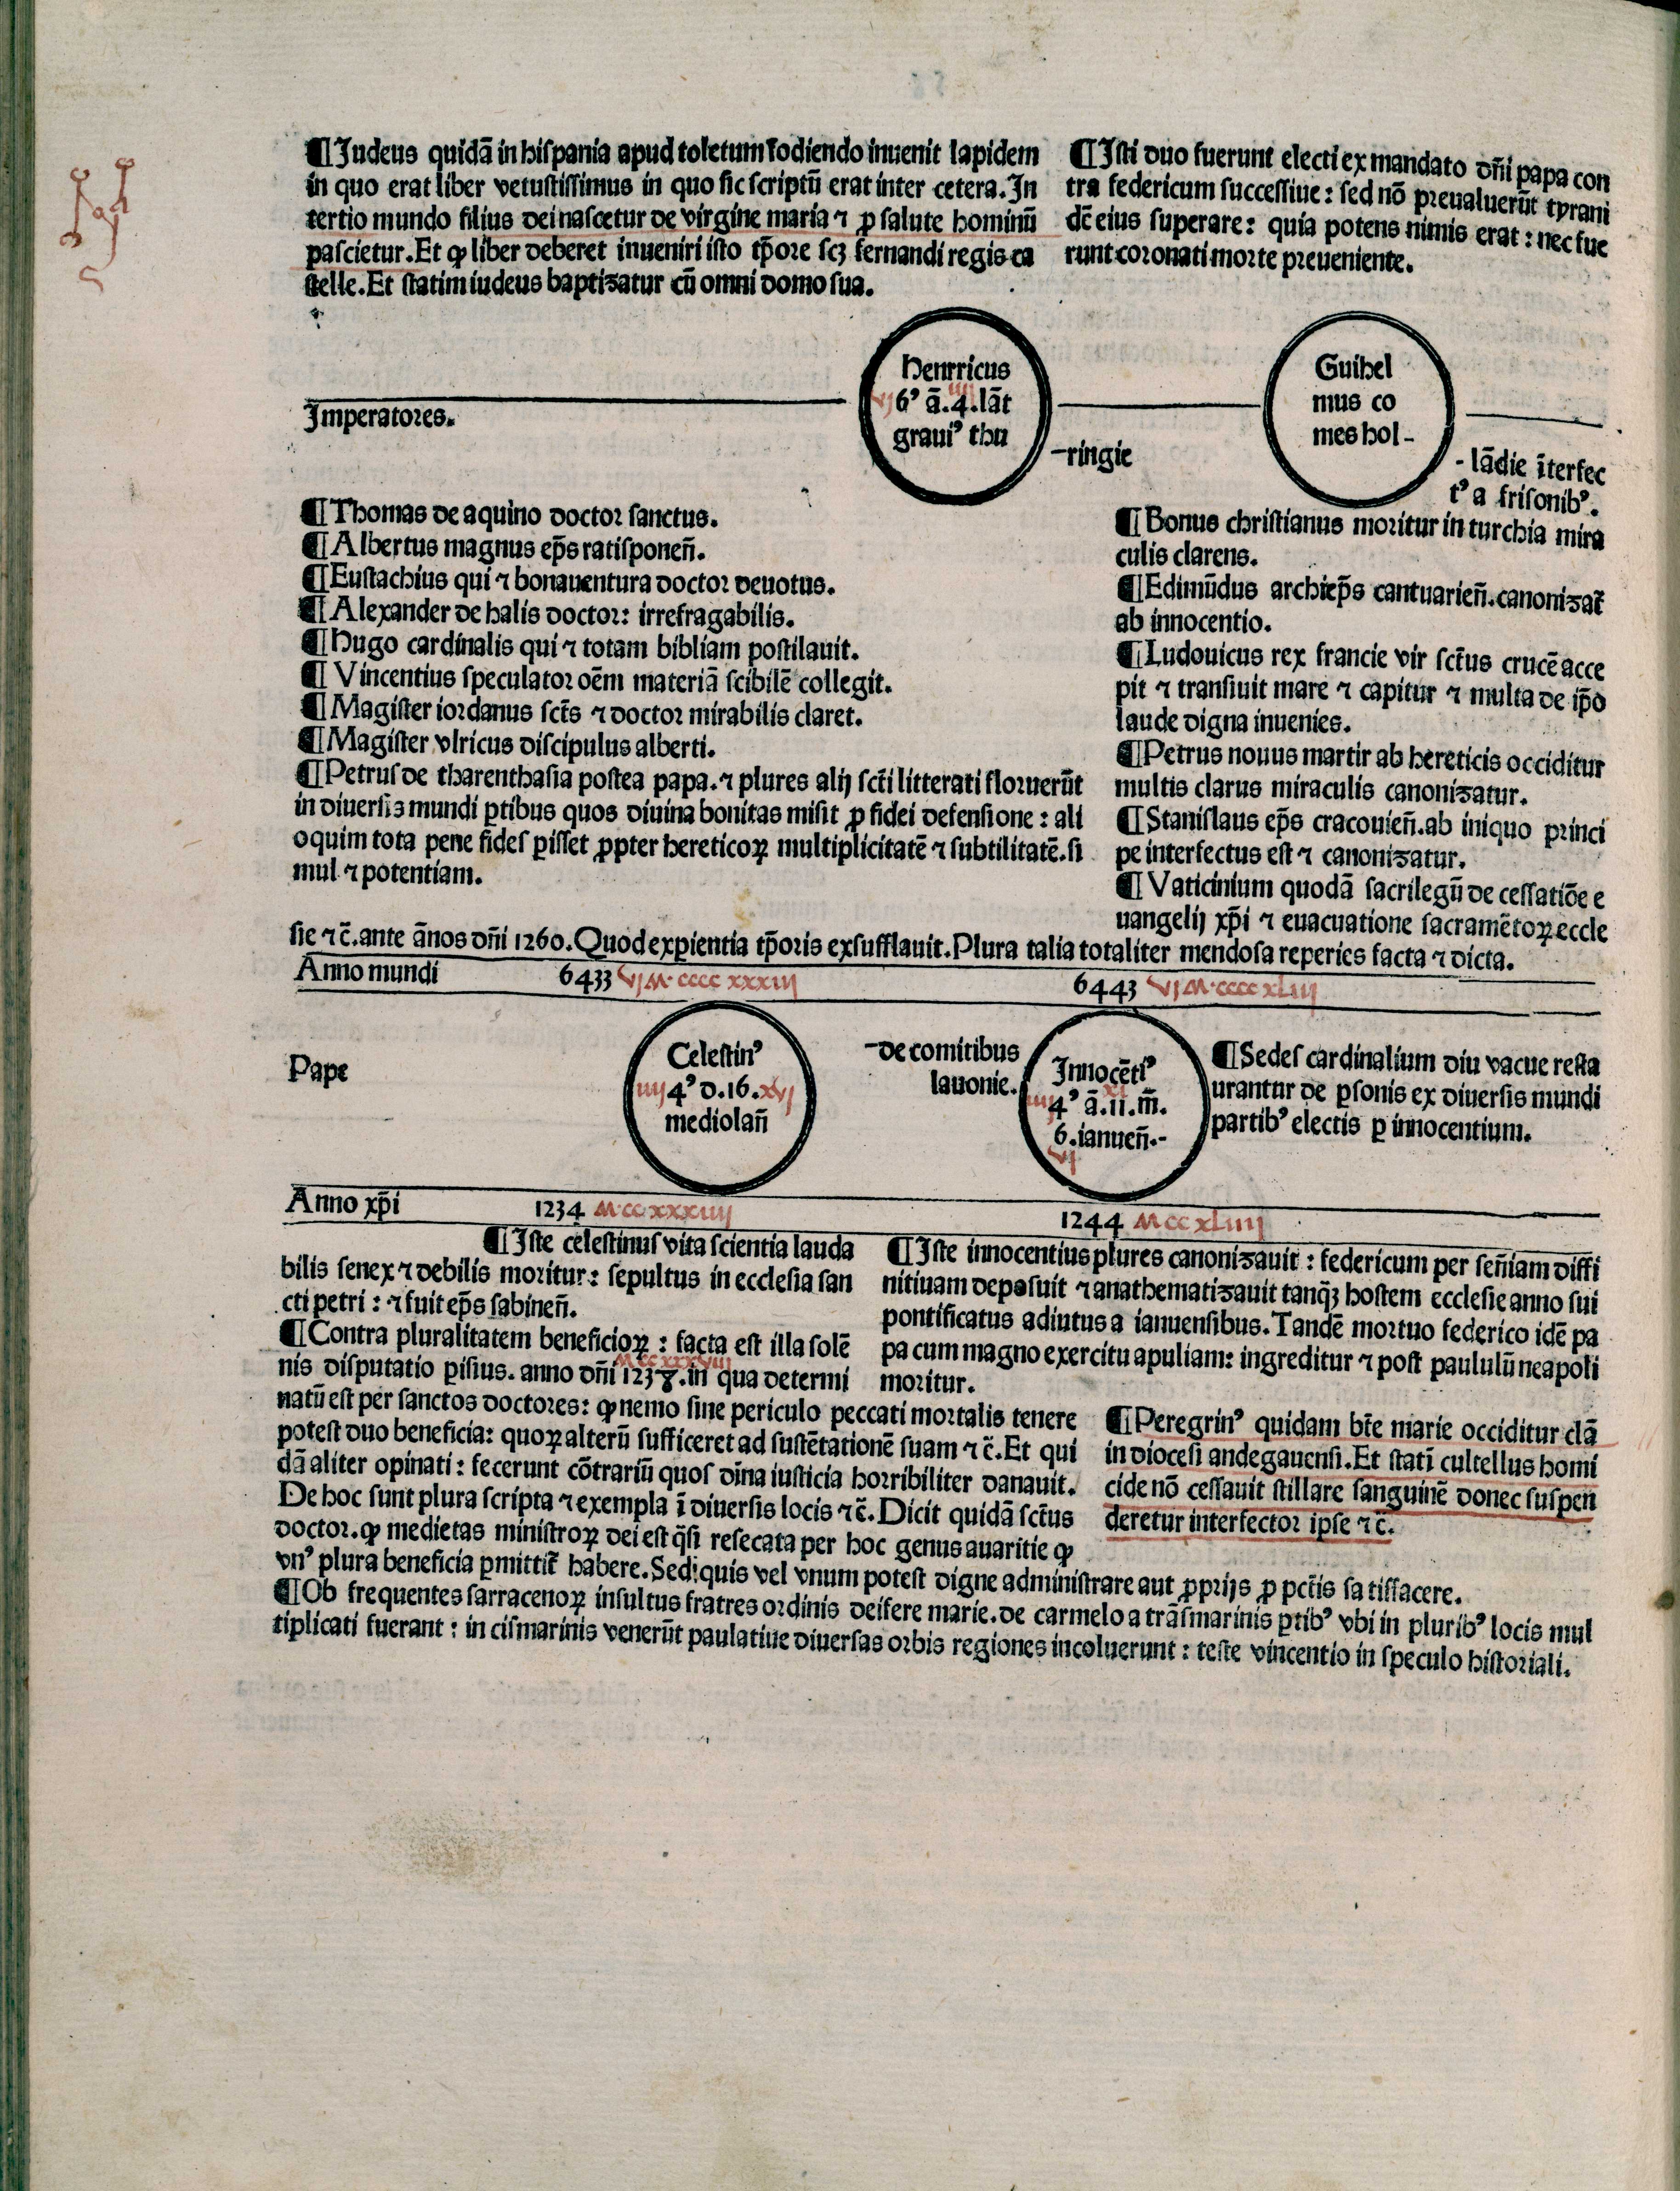 ¶Judeus quidā in hiſpania apud toletum fodiendo inuenit lapidem
in quo erat liber vetuſtiſſimus in quo ſic ſcriptū erat inter cetera. In
tertio mundo filius dei naſcetur de virgine maria ⁊ ꝓ ſalute hominū
paſcietur. Et ꝙ liber deberet inueniri iſto tꝑore ſcꝫ fernandi regis ca
ſtelle. Et ſtatim iudeus baptiꝫatur cū omni domo ſua.
¶Iſti duo fuerunt electi ex mandato dn̄i papa con
tra federicum ſucceſſiue: ſed nō preualuerūt tyrani
dē eius ſuperare: quia potens nimis erat: nec fue
runt coronati morte preueniente.
Imperatores.
Henrricus
6ꝰ ā.4.lāt
grauiꝰ thu
-ringie
Guihel
mus co
mes hol-
-lādie īterfec
tꝰ a friſonibꝰ.
¶Thomas de aquino doctor ſanctus.
¶Albertus magnus ep̄s ratiſponen̄.
¶Euſtachius qui ⁊ bonauentura doctor deuotus.
¶Alexander de halis doctor: irrefragabilis.
¶Hugo cardinalis qui ⁊ totam bibliam poſtilauit.
¶Vincentius ſpeculator oēm materiā ſcibilē collegit.
¶Magiſter iordanus ſct̄s ⁊ doctor mirabilis claret.
¶Magiſter vlricus diſcipulus alberti.
¶Petruſ de tharenthaſia poſtea papa. ⁊ plures alij ſct̄i litterati floruerūt
in diuerſis mundi ꝑtibus quos diuina bonitas miſit ꝓ fidei defenſione: ali
oquim tota pene fideſ ꝑiſſet ꝓpter hereticoꝝ multiplicitatē ⁊ ſubtilitatē. ſi
mul ⁊ potentiam.
¶Bonus chriſtianus moritur in turchia mira
culis clarens.
¶Edimūdus archiep̄s cantuarien̄. canoniꝫat᷑
ab innocentio.
¶Ludouicus rex francie vir ſct̄us crucē acce
pit ⁊ tranſiuit mare ⁊ capitur ⁊ multa de ip̄o
laude digna inuenies.
¶Petrus nouus martir ab hereticis occiditur
multis clarus miraculis canoniꝫatur.
¶Staniſlaus ep̄s cracouien̄. ab iniquo princi
pe interfectus eſt ⁊ canoniꝫatur.
¶Vaticinium quodā ſacrilegū de ceſſatiōe e
uangelij xp̄i ⁊ euacuatione ſacramētoꝝ eccle
ſie ⁊ c̄. ante ānos dn̄i 1260. Quod exꝑientia tꝑoris exſufflauit. Plura talia totaliter mendoſa reperies facta ⁊ dicta.
Anno mundi 6433 vj M.cccc xxxiij 6443 vj M.cccc xliij
Pape
Celeſtinꝰ
iiij 4ꝰ d.16. xvj
mediolan̄
-de comitibus
lauonie.
Innocētiꝰ
xi
iiij 4ꝰ ā.11.m̄.
6.ianuen̄.-
vj
¶Sedeſ cardinalium diu vacue reſta
urantur de ꝑſonis ex diuerſis mundi
partibꝰ electis ꝑ innocentium.
Anno xp̄i 1234 M.cc xxxiiij 1244 M cc xliiij
¶Iſte celeſtinuſ vita ſcientia lauda
bilis ſenex ⁊ debilis moritur: ſepultus in eccleſia ſan
cti petri: ⁊ fuit ep̄s ſabinen̄.
¶Contra pluralitatem beneficioꝝ: facta eſt illa ſolē
M cc xxxviij
nis diſputatio ꝑiſius. anno dn̄i 1238. in qua determi
natū eſt per ſanctos doctores: ꝙ nemo ſine periculo peccati mortalis tenere
poteſt duo beneficia: quoꝝ alterū ſufficeret ad ſuſtētationē ſuam ⁊ c̄. Et qui
dā aliter opinati: fecerunt cōtrariū quoſ diīa iuſticia horribiliter danauit.
De hoc ſunt plura ſcripta ⁊ exempla ī diuerſis locis ⁊ c̄. Dicit quidā ſct̄us
doctor. ꝙ medietas miniſtroꝝ dei eſt q̄ſi reſecata per hoc genus auaritie ꝙ
vnꝰ plura beneficia ꝑmittit᷑ habere. Sed quis vel vnum poteſt digne adminiſtrare aut ꝓprijs ꝓ pct̄is ſatiſfacere.
¶Iſte innocentius plures canoniꝫauit: federicum per ſen̄iam diffi
nitiuam depoſuit ⁊ anathematiꝫauit tanqꝫ hoſtem eccleſie anno ſui
pontificatus adiutus a ianuenſibus. Tandē mortuo federico idē pa
pa cum magno exercitu apuliam: ingreditur ⁊ poſt paululū neapoli
moritur.
¶Peregrinꝰ quidam bt̄e marie occiditur clā
in dioceſi andegauenſi. Et ſtatī cultellus homi
cide nō ceſſauit ſtillare ſanguinē donec ſuſpen
deretur interfector ipſe ⁊ c̄.
¶Ob frequentes ſarracenoꝝ inſultus fratres ordinis deifere marie. de carmelo a trāſmarinis ꝑtibꝰ vbi in pluribꝰ locis mul
tiplicati fuerant: in ciſmarinis venerūt paulatiue diuerſas orbis regiones incoluerunt: teſte vincentio in ſpeculo hiſtoriali.